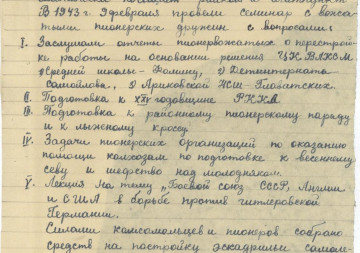 В 1943 г. 9 февраля провели семинар с вожа-
тыми пионерских дружин с вопросами:
I. Заслушали отчеты пионервожатых о перестрой-
ке работы на основании решения ЦК ВЛКСМ
Средней школы - Фомину, Детинтерната
Самойлова, Ариковской НСШ -
II. Подготовка к XXV годовщине РККА
III. Подготовка к районному пионерскому параду
и к лыжному кроссу.
IV. Задачи пионерских организаций по оказанию
помощи колхозам по подготовке к весеннему
севу и шефство над молодняком.
V. Лекция на тему "Боевой союз СССР, Англии
и США в борьбе против гитлеровской
Германии.
Силами комсомольцев и пионеров собрано
средств на постройку эскадрильи самол-